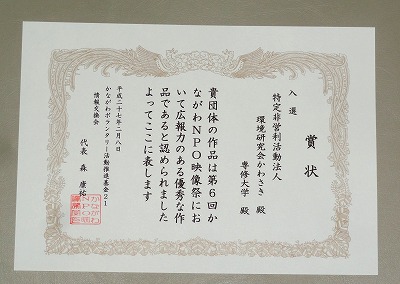 賞状
入選
特定非営利活動法人
環境研究会かわさき 殿
専修大学 殿
貴団体の作品は第6回か
ながわNPO映像祭にお
いて広報力のある優秀な作
品であると認められました
よってここに表します
平成二十七年二月八日
かながわボランタリー活動推進基金21
情報交換会
代表 森 康祐